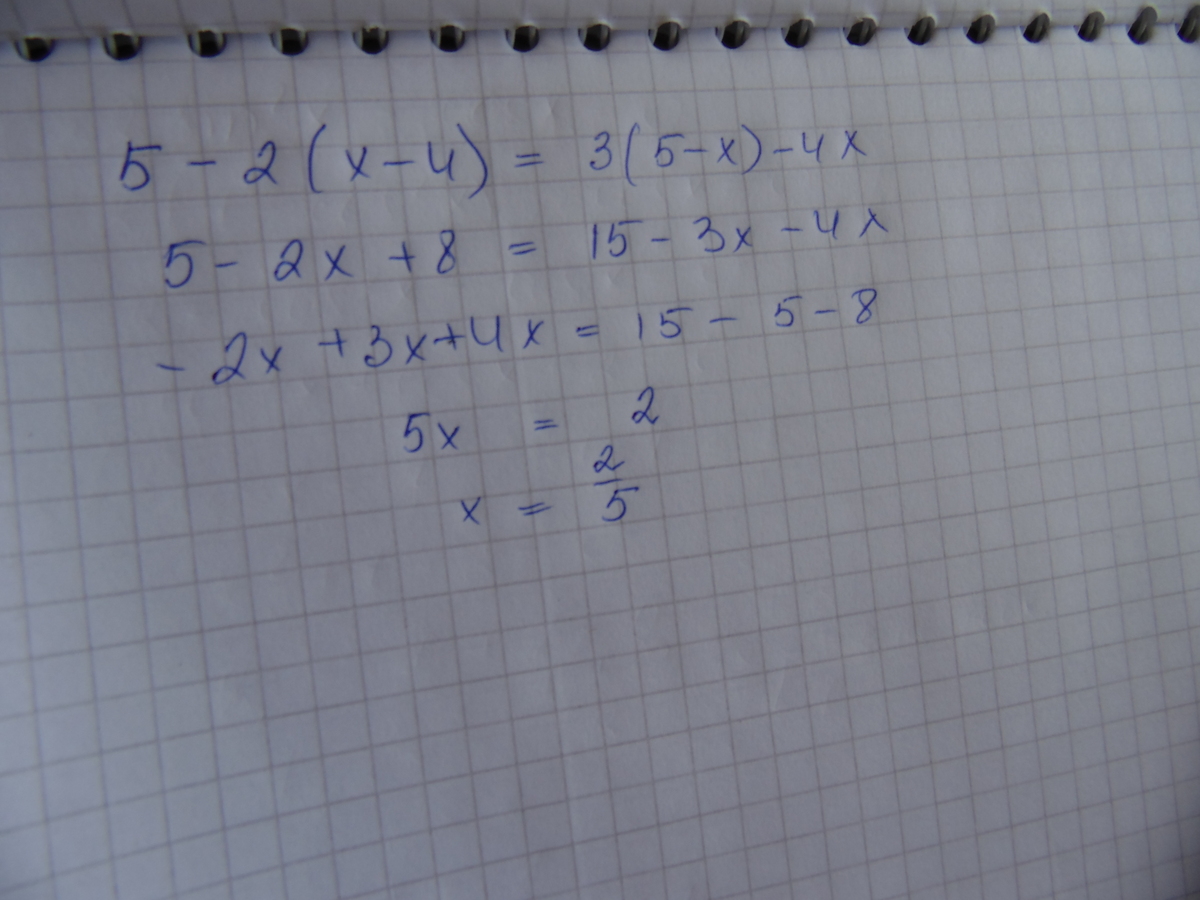 5 - 2 (x - 4) = 3 (5 - x) - 4x
5 - 2x + 8 = 15 - 3x - 4x
- 2x + 3x + 4x = 15 - 5 - 8
5x = 2
x = 2/5